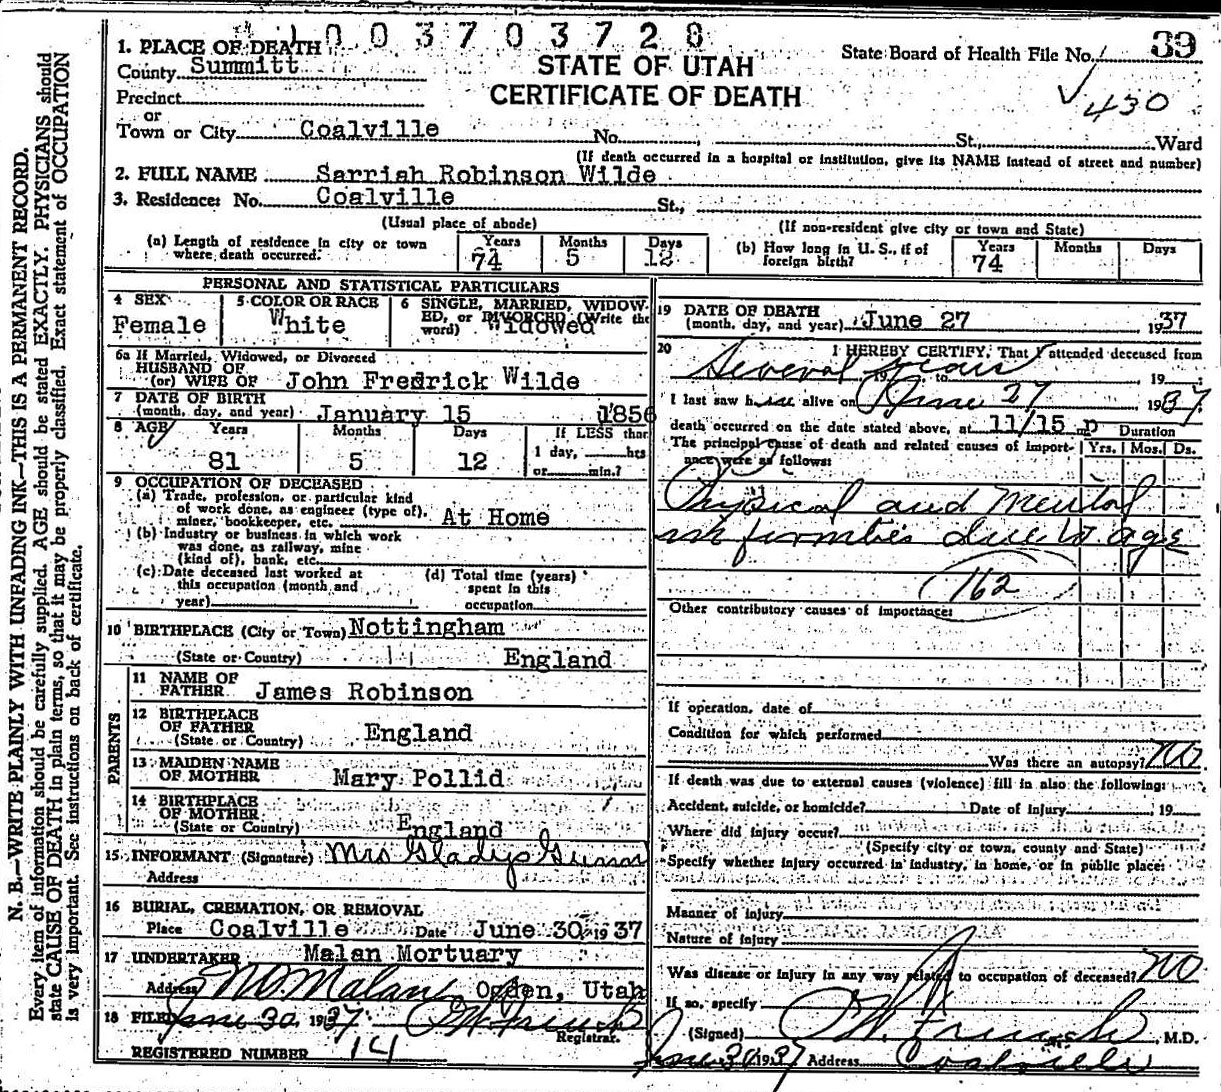 1003703728
1. PLACE OF DEATH
County Summitt
STATE OF UTAH
State Board of Health File No. 39
Precinct
CERTIFICATE OF DEATH
430
or
Town or City Coalville No. St., Ward
(If death occurred in a hospital or institution, give its NAME instead of street and number)
2. FULL NAME Sarriah Robinson Wilde
3. Residence: No. Coalville St.,
(Usual place of abode) (If non-resident give city or town and State)
(a) Length of residence in city or town where death occurred. Years 74 Months 5 Days 12
(b) How long in U. S., if of foreign birth? Years 74 Months Days
PERSONAL AND STATISTICAL PARTICULARS
4 SEX Female
5 COLOR OR RACE White
6 SINGLE, MARRIED, WIDOWED, or DIVORCED (Write the word) Widowed
6a If Married, Widowed, or Divorced
HUSBAND OF
(or) WIFE OF John Fredrick Wilde
7 DATE OF BIRTH
(month, day, and year) January 15 1856
8 AGE Years 81 Months 5 Days 12
If LESS than
1 day, hrs
or min.?
9 OCCUPATION OF DECEASED
(a) Trade, profession, or particular kind
of work done, as engineer (type of),
miner, bookkeeper, etc. At Home
(b) Industry or business in which work
was done, as railway, mine
(kind of), bank, etc.
(c) Date deceased last worked at
this occupation (month and
year)
(d) Total time (years)
spent in this
occupation
10 BIRTHPLACE (City or Town) Nottingham
(State or Country) England
PARENTS
11 NAME OF
FATHER James Robinson
12 BIRTHPLACE
OF FATHER England
(State or Country)
13 MAIDEN NAME
OF MOTHER Mary Pollid
14 BIRTHPLACE
OF MOTHER
(State or Country) England
15 INFORMANT (Signature) Mrs Gladys
Address
16 BURIAL, CREMATION, OR REMOVAL
Place Coalville Date June 30 1937
17 UNDERTAKER Malan Mortuary
Address Malan Ogden, Utah
18 FILED June 30 1937
Registrar.
REGISTERED NUMBER 14
19 DATE OF DEATH
(month, day, and year) June 27 1937
20 I HEREBY CERTIFY, That I attended deceased from
Several years 19 to 19
I last saw h alive on June 27 1937
death occurred on the date stated above, at 11/15 p m Duration
The principal cause of death and related causes of importance were as follows: Yrs. Mos. Ds.
Physical and Mental
infirmities due to age
162
Other contributory causes of importance:
If operation, date of
Condition for which performed
Was there an autopsy? No.
If death was due to external causes (violence) fill in also the following:
Accident, suicide, or homicide? Date of Injury 19
Where did injury occur?
(Specify city or town, county and State)
Specify whether injury occurred in industry, in home, or in public place:
Manner of injury
Nature of injury
Was disease or injury in any way related to occupation of deceased? NO
If so, specify
(Signed) M.D.
June 30 1937 Address Coalville
N. B.—WRITE PLAINLY WITH UNFADING INK—THIS IS A PERMANENT RECORD.
Every item of information should be carefully supplied. AGE should be stated EXACTLY. PHYSICIANS should
state CAUSE OF DEATH in plain terms, so that it may be properly classified. Exact statement of OCCUPATION
is very important. See instructions on back of certificate.